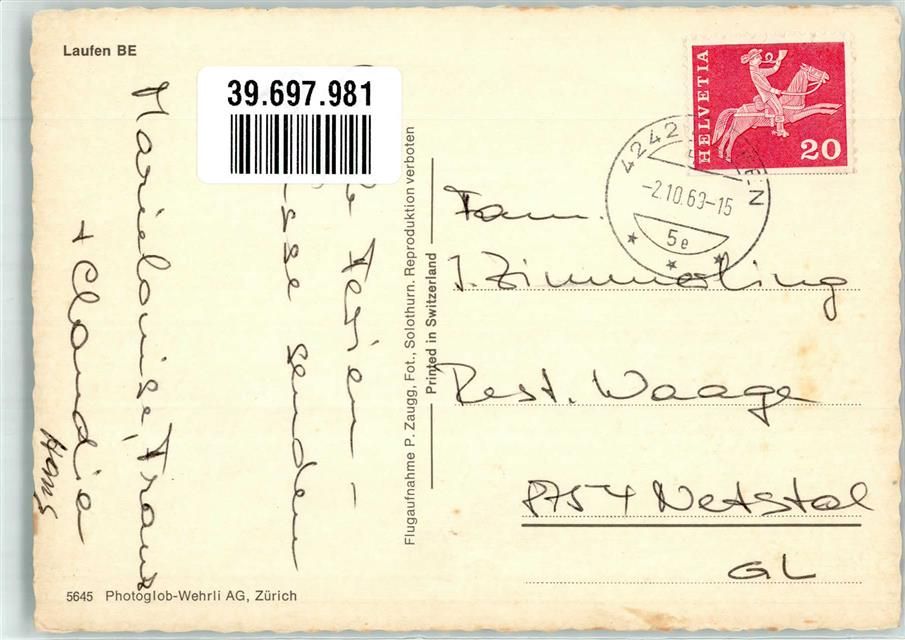 Laufen BE
39.697.981
Ferien-
senden
Marielouise, Franz
+ Claudia
Hans
Flugaufnahme P. Zaugg, Fot., Solothurn. Reproduktion verboten
Printed in Switzerland
HELVETIA
20
4242
-2.10.69-15
5e
Fam.
J. Zimmerling
Rest. Waage
8754 Netstal
GL
5645 Photoglob-Wehrli AG, Zürich